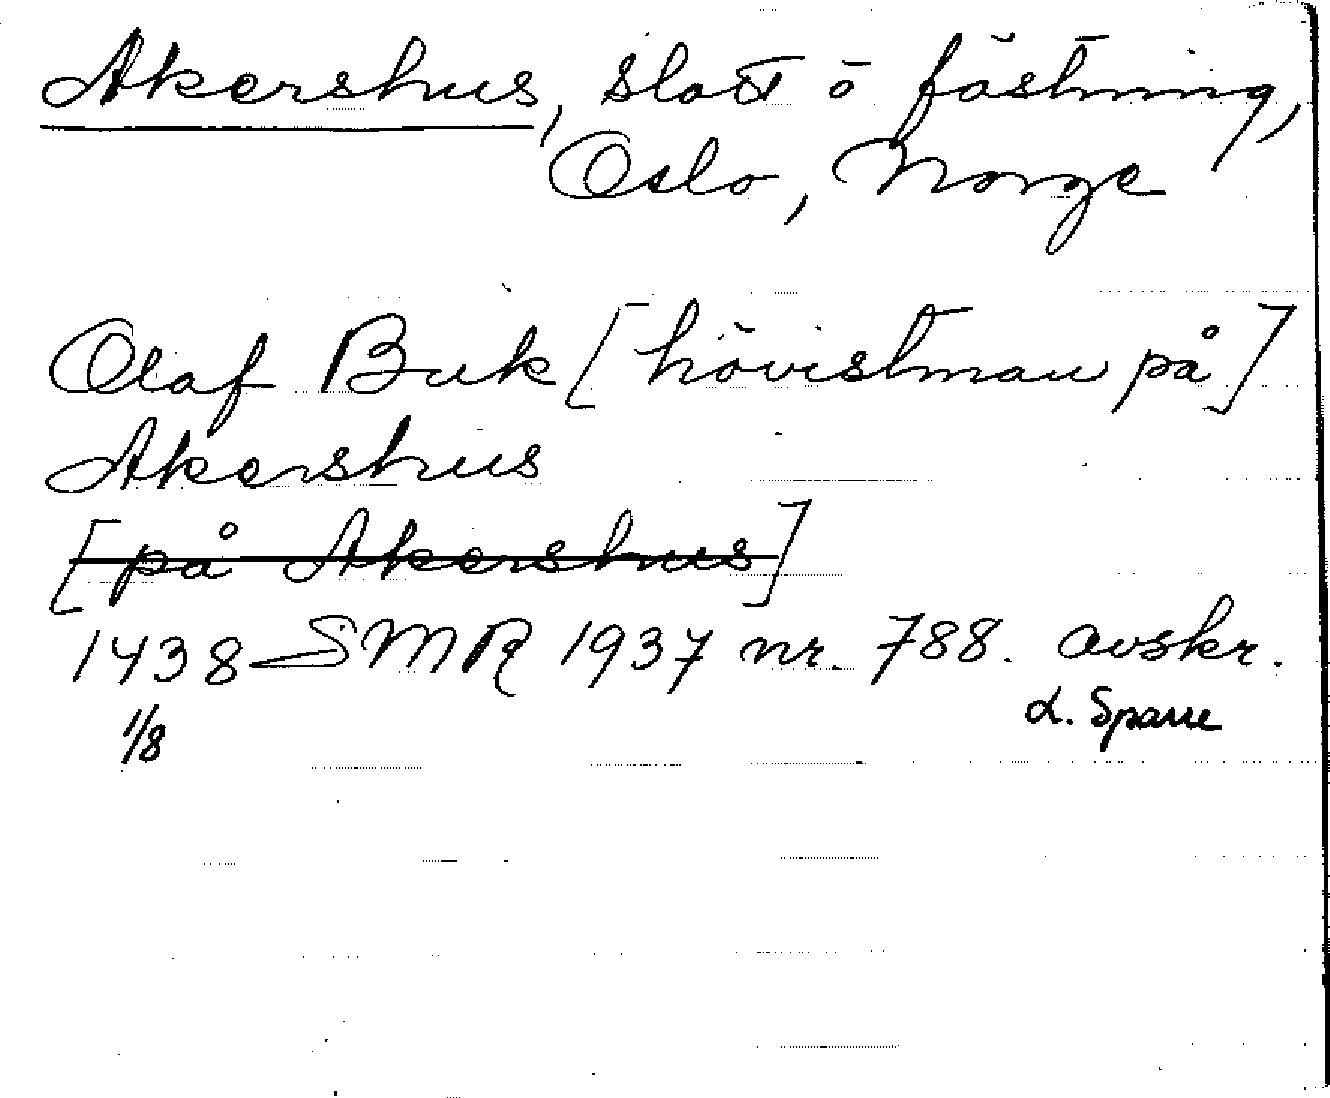 Akershus, slott ō fästning,
Oslo, Norge
Olaf Buk [hövistman på]
Akershus
[på Akershus]
1438 SMR 1937 nr. 788. avskr.
1/8 L. Sparre